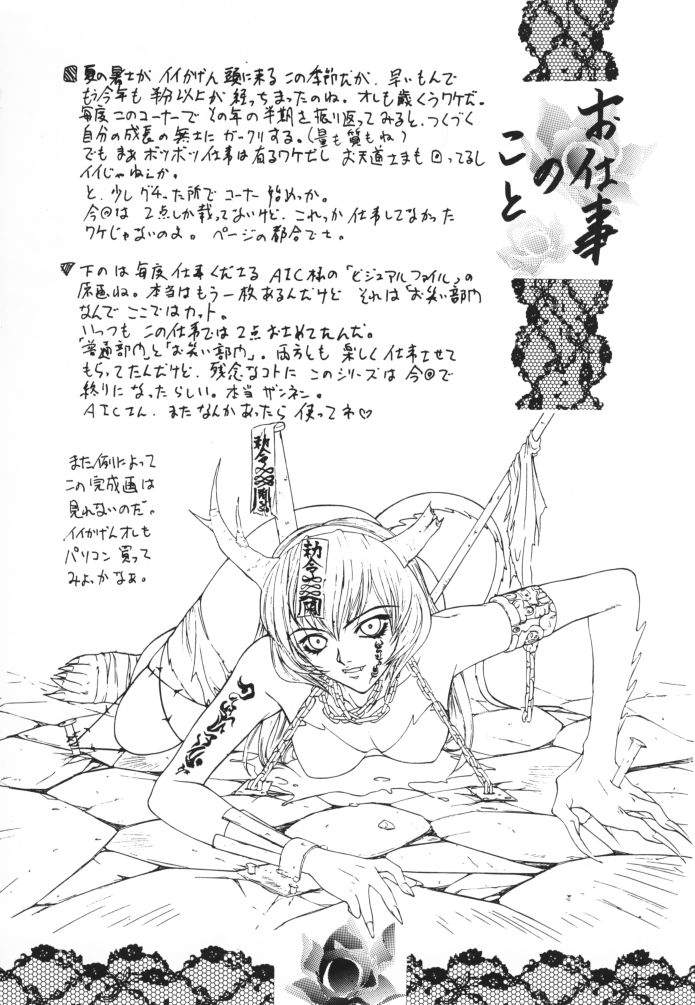 お仕事
の
こと
夏の暑さが イイかげん 頭に来る この季節だが、早いもんで
もう今年も 半分以上が 経っちまったのね。オレも歳くうワケだ。
毎度 このコーナーで その年の半期を振り返ってみると、つくづく
自分の成長の無さに ガークリする。(量も質もね)
でも まあ ボツボツ仕事は有るワケだし お天道さまも 回ってるし
イイじゃねぇか。
と、少し グチった所で コーナー 始めっか。
今回は 2点しか載ってないけど、これっか 仕事してなかった
ワケじゃないのよ。 ページの都合でさ。
下のは 毎度 仕事くださる AIC様の「ビジュアルファイル」の
原画ね。本当はもう一枚あるんだけど それは「お笑い部門」
なんで ここではカット。
いつも この仕事では 2点 おさめてたんだ。
「普通部門」と「お笑い部門」。両方とも 楽しく仕事させて
もらってたんだけど、残念なコトに このシリーズは 今回で
終りに なったらしい。本当 ザンネン。
AICさん、またなんかあったら 使ってネ♡
また例によって
この完成画は
見れないのだ。
イイかげんオレも
パソコン 買って
みよっかなぁ。
勅令
勅令